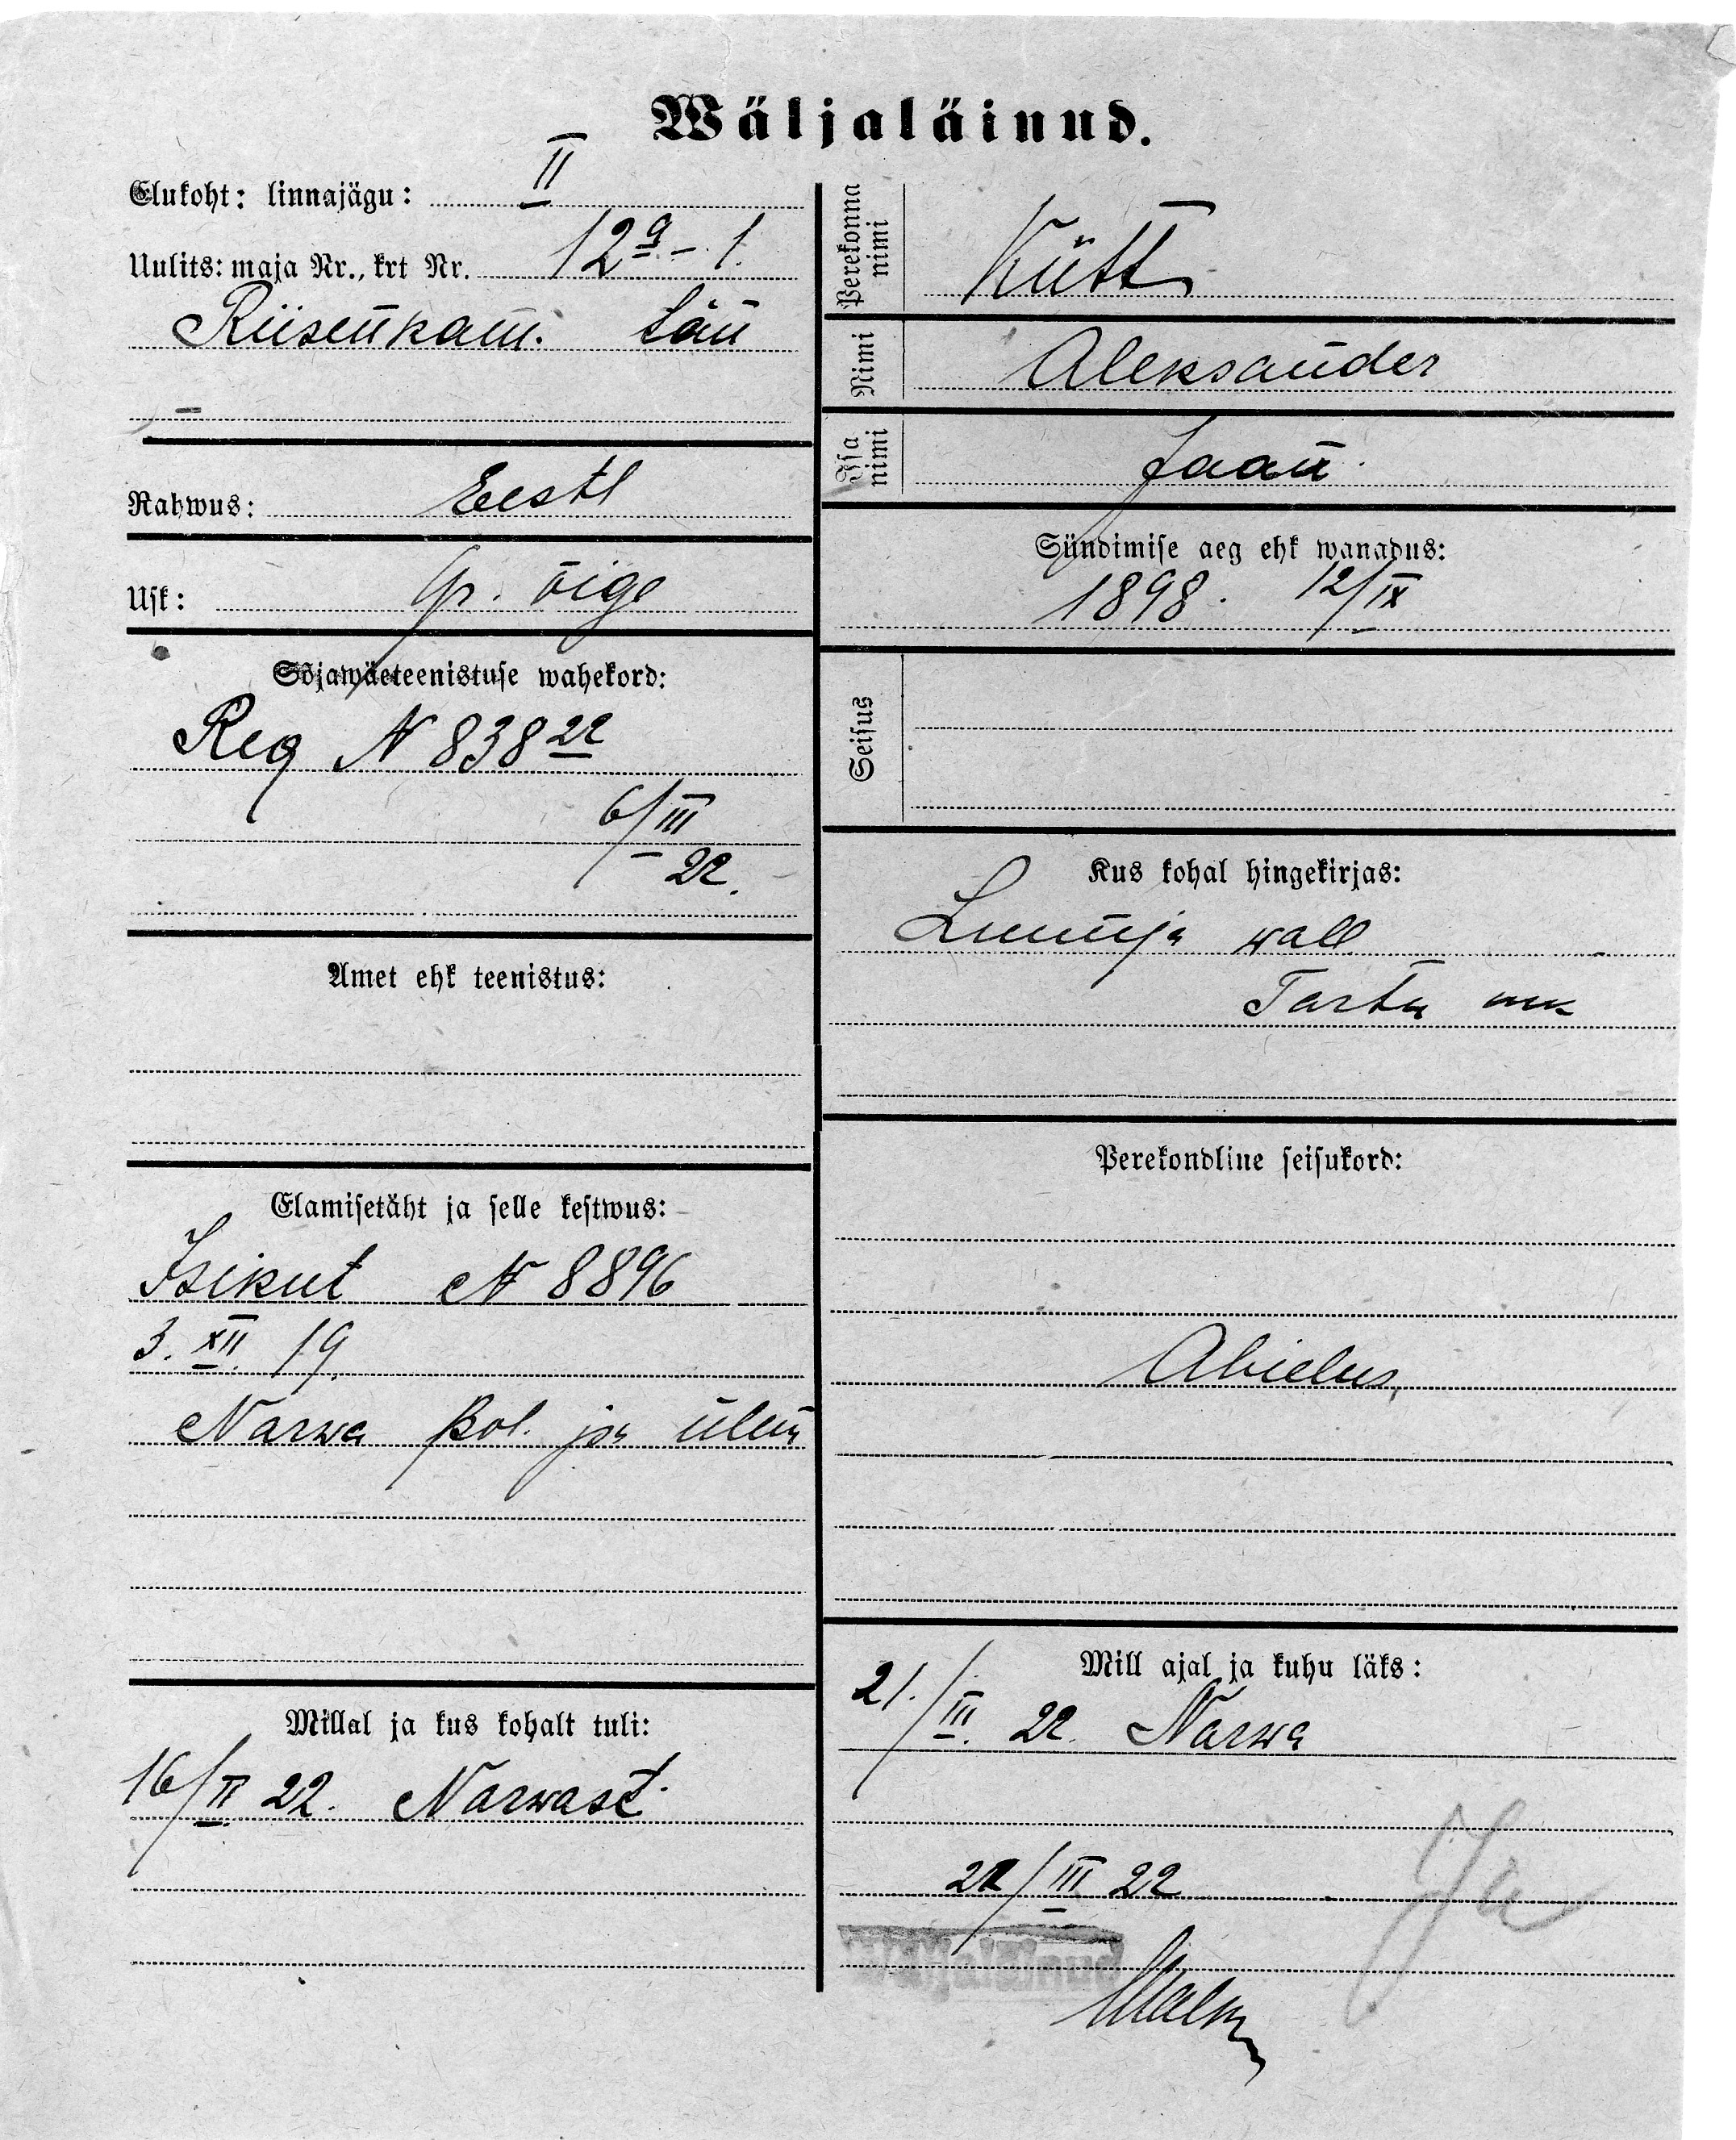 Wäljaläinud.
Elukoht: linnajägu: II
Uulits: maja Nr., krt Nr. 12ª – 1.
Rüsenkam. tän
Rahwus: Eestl
Usk: Gr. õige
Sõjawäeteenistuse wahekord:
Reg N 838 22
6/III
22.
Amet ehk teenistus:
Elamisetäht ja selle kestwus:
Isikut N 8896
3. XII. 19.
Narwa pol. jsk ülem
Millal ja kus kohalt tuli:
16/II 22. Narwast.
Perekonna nimi Kütt
Nimi Aleksander
Isa nimi Jaan
Sündimise aeg ehk wanadus:
1898. 12/IX
Seisus
Kus kohal hingekirjas:
Luunja wall
Tartu mk
Perekondline seisukord:
Abielus
Mill ajal ja kuhu läks:
21./III. 22. Narwa
22/III 22
Wäljaläinud